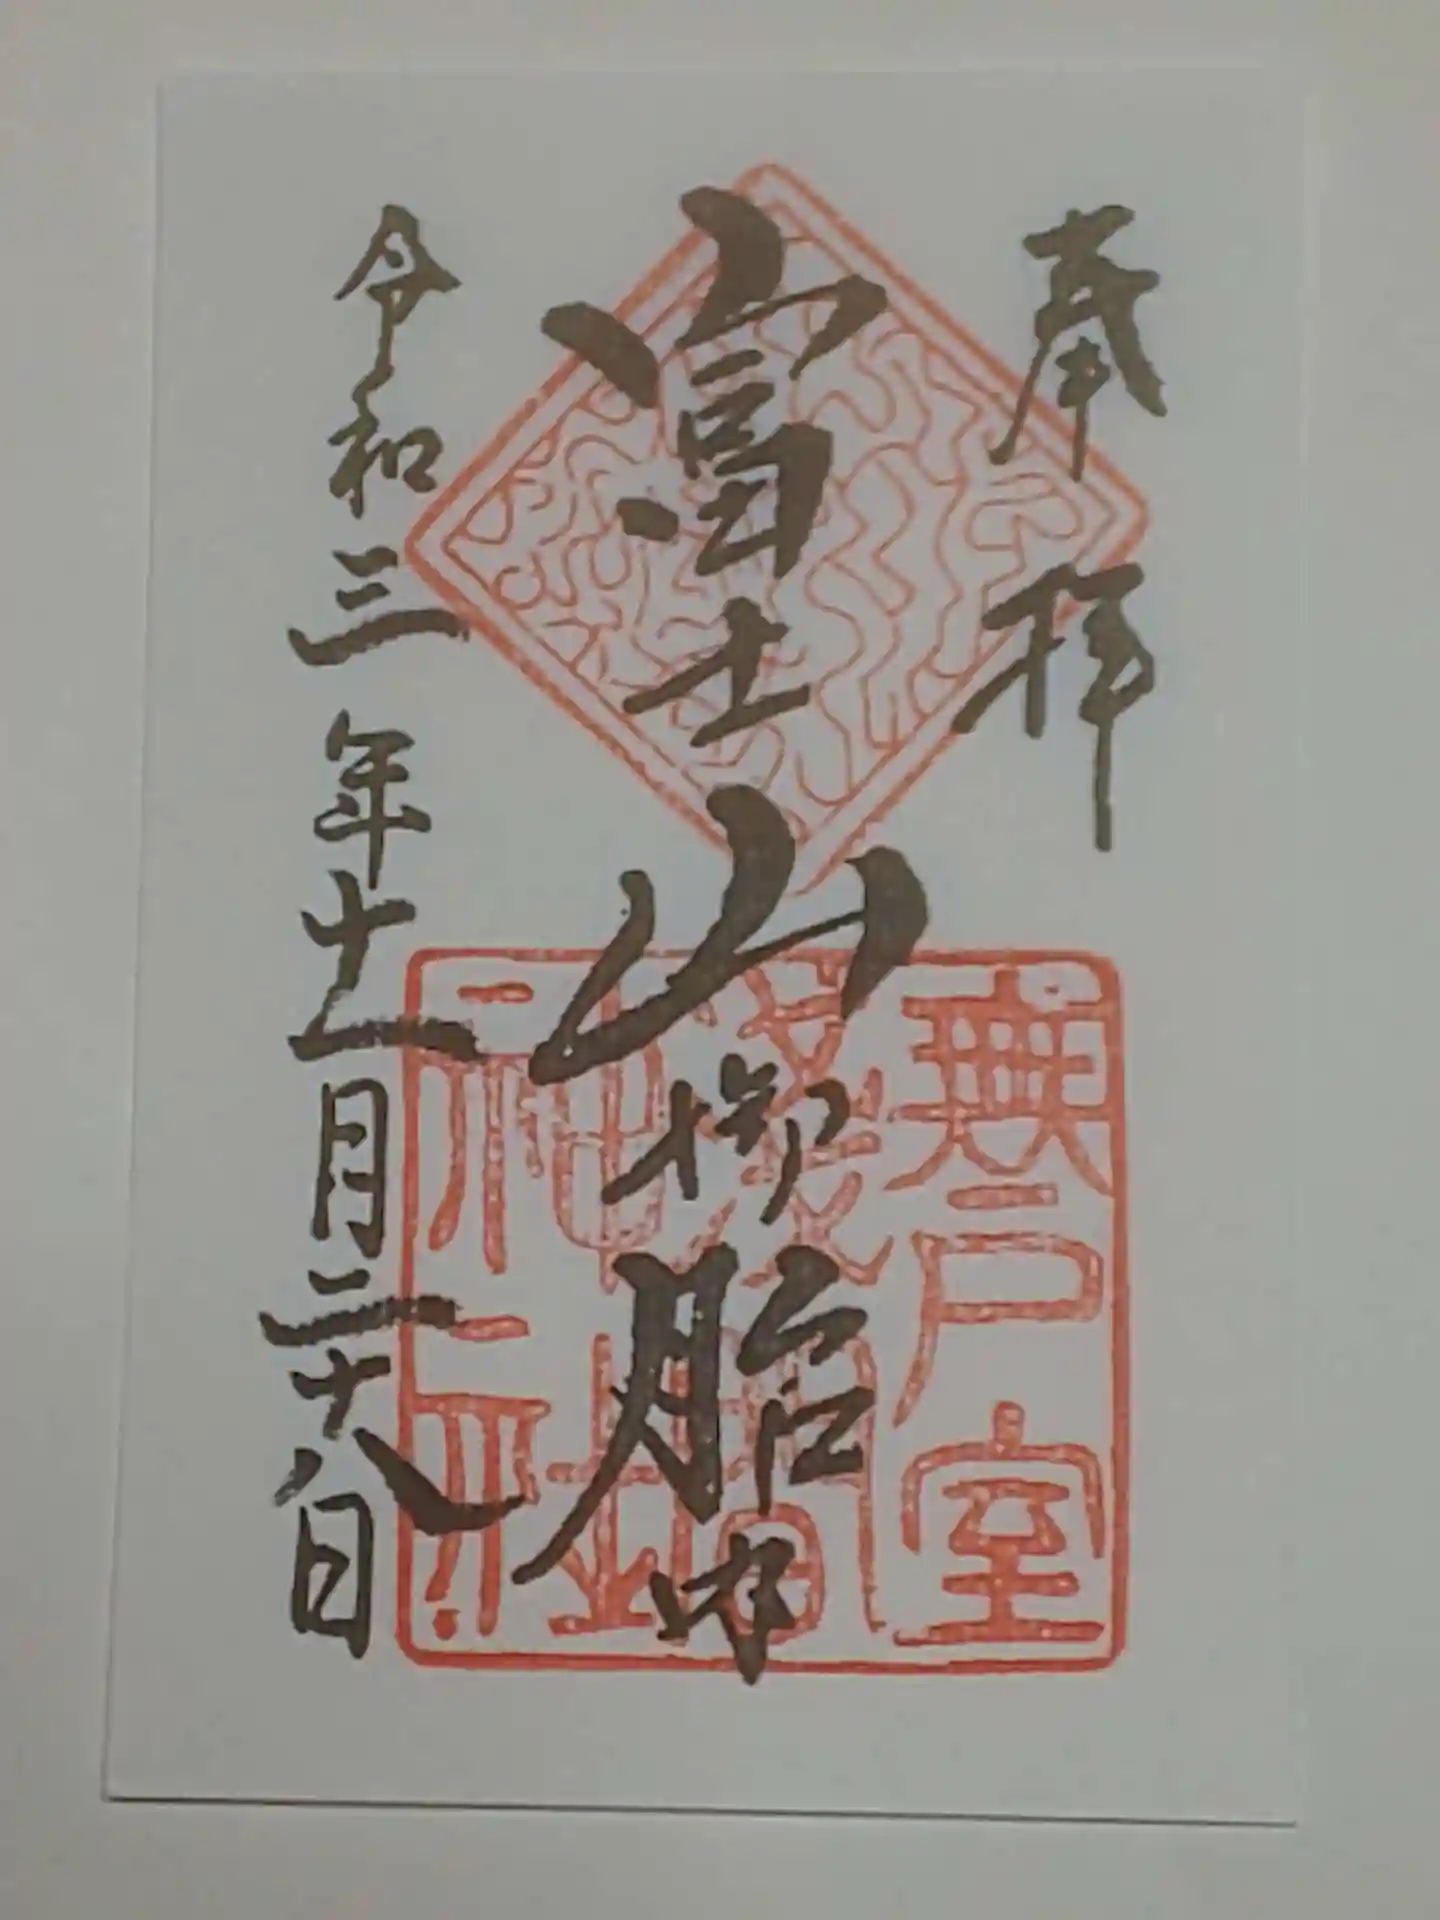 奉拝
富士山御胎内
無戸室
浅間
神社
令和三年十一月二十八日